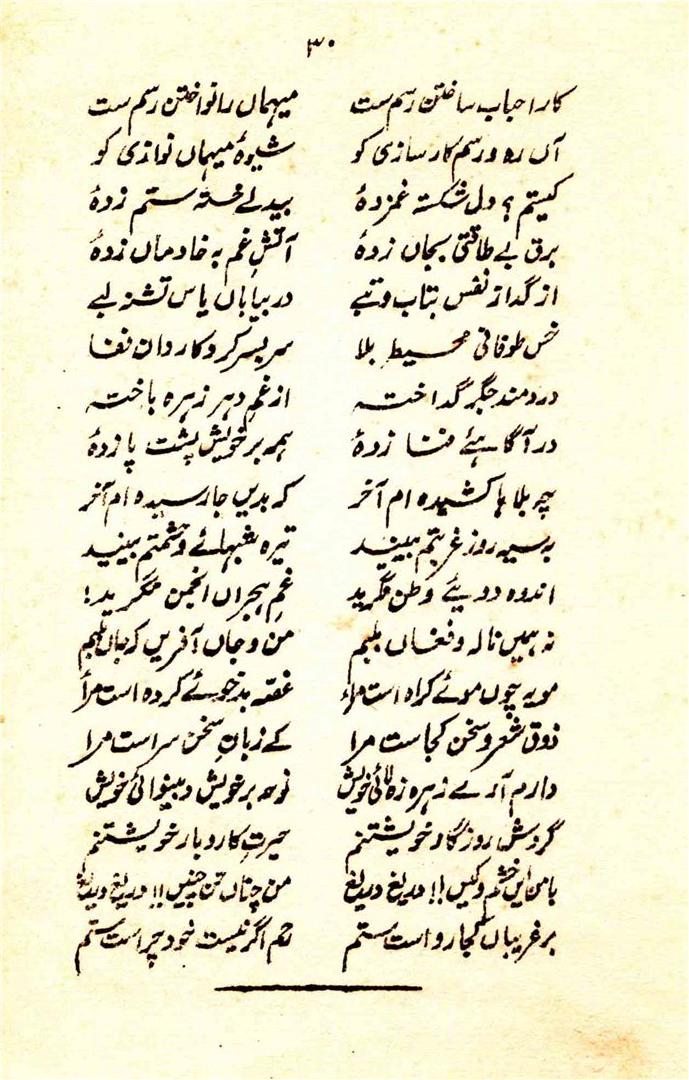 ۳۰
کار احباب ساختن رسم ست میہماں را نواختن رسم ست
آں رہ و رسم کار سازی کو شیوۂ میہماں نوازی کو
کیستم؟ دل شکستہ غمزدۂ بیدلے خستہ ستم زدۂ
برق بے طاقتی بجاں زدۂ آتشِ غم بہ خادماں زدۂ
از گداز نفس بتاب و تبے در بیاباں یاس تشنہ لبے
خس طوفانی محیطِ بلا سر بسر گرد کاروان فنا
دردمند جگر گداختہ از غمِ دہر زہرہ باختہ
در آگاہئے فنا زدۂ ہمہ بر خویش پشت پا زدۂ
چہ بلاہا کشیدہ ام آخر کہ بدیں جا رسیدہ ام آخر
بہ سیہ روز غربتم بینید تیرہ شبہائے وحشتم بینید
اندوہ دوریئے وطن نگرید غمِ ہجراں انجمن نگرید!
نہ ہمیں نالہ و فغاں بلبم من و جاں آفریں کہ جاں بلبم
مویہ چوں موئے کردہ است مرا غصہ بدخوئے کردہ است مرا
ذوق شعر و سخن کجاست مرا کے زبانِ سخن سراست مرا
دارم آرے زہرہ زہ لائی خویش نوحہ بر خویش و بینوائی خویش
گردشِ روزگار خویشتنم حیرتِ کاروبار خویشتنم
با من ایں خشم و کیں!! دریغ دریغ من چناں تن چنیں!! دریغ دریغ
بر غریباں کجا رواست ستم رحم اگر نیست خود چراست ستم